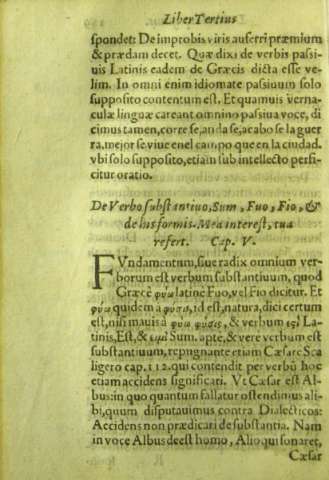 Liber Tertius
spondet: De improbis viris auferri præmium
& prædam decet. Quæ dixi de verbis passi-
uis Latinis eadem de Græcis dicta esse ve-
lim. In omni enim idiomate passiuum solo
supposito contentum est. Et quamuis verna-
culæ linguæ careant omnino passiua voce, di
cimus tamen, corre se, anda se, acabo se la guer
ra, mejor se viue en el campo que en la ciudad.
vbi solo supposito, etiam sub intellecto perfi-
citur oratio.
De Verbo substantiuo, Sum, Fuo, Fio, &
de his formis. Mea interest, tua
refert. Cap. V.
FVndamentum, siue radix omnium ver-
borum est verbum substantiuum, quod
Græcè φύω latinè Fuo, vel Fio dicitur. Et
φύω quidem à φύσις, id est, natura, dici certum
est, nisi mauis à φύω φύσις, & verbum ἐςὶ La-
tinis, Est, & εἰμὶ Sum. apte, & vere verbum est
substantiuum, repugnante etiam Cæsare Sca
ligero cap. 112. qui contendit per verbū hoc
etiam accidens significari. Vt Cæsar est Al-
bus: in quo quantum fallatur ostendimus ali-
bi, quum disputauimus contra Dialecticos:
Accidens non prædicari de substantia. Nam
in voce Albus deest homo, Alioqui sonaret,
Cæsar